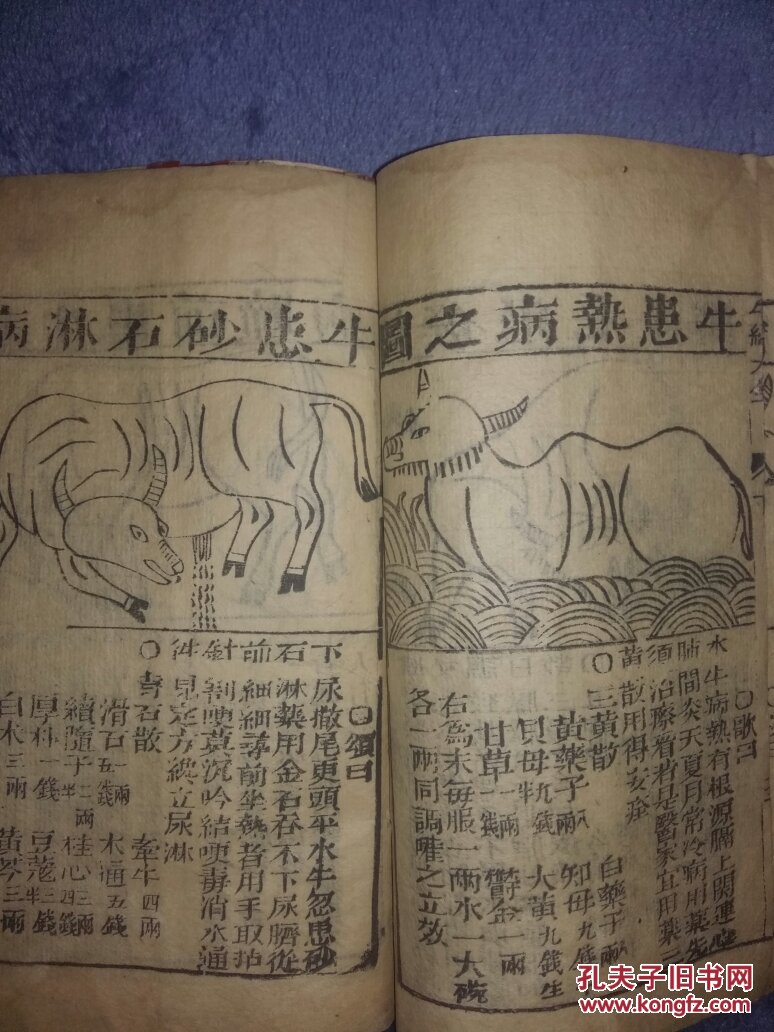 牛經大全
牛患熱病之圖
○歌曰
水牛病熱有根源膈上関連心
肺間炎天夏月常冷病用藥先
須治療看若是醫家宜用藥三
黄散用得安痊
○三黄散 白藥子
黄藥子 知母九錢
貝母九錢半 大黄九錢生
甘草一錢 鬱金一兩
右為末每服一兩水一大碗
各一兩同調嚾之立效
牛患砂石淋病
○頌曰
下尿撒尾更頭平水牛忽患砂
石淋藥用金石吞不下尿臍從
前細細導前坐熱者用手取拍
針刺哽黄沉吟結哽毒消水通
見定方纔立尿淋
○石散 牽牛四兩
滑石一兩 木通五錢
續隨子二兩半 桂心四錢
厚朴一錢 豆蔻三錢
白术三兩 黄芩三兩
孔夫子旧书网
www.kongfz.com
孔网